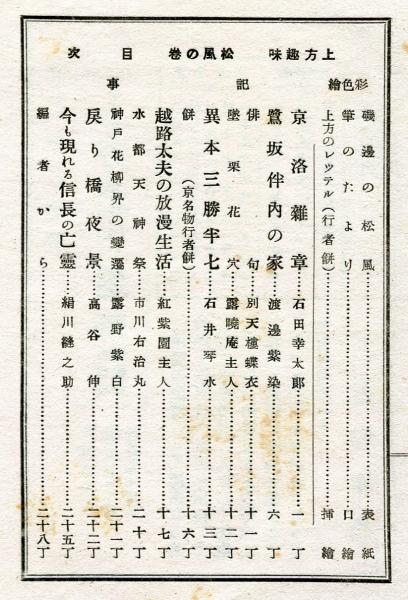 上方趣味 松風の巻 目次
彩色繪
磯邊の松風……表紙
筆のたより……口繪
上方のレッテル(行者餅)……挿繪
記事
京洛雜章……石田幸太郎……一丁
鷺坂伴内の家……渡邊紫染……六丁
俳句……別天樓蝶衣……十一丁
墜栗花穴……露曉庵主人……十二丁
異本三勝半七……石井琴水……十三丁
餅(京名物行者餅)……十六丁
越路太夫の放漫生活……紅紫園主人……十七丁
水都天神祭……市川右治丸……二十丁
神戸花柳界の變遷……露野紫白……二十一丁
戻り橋夜景……高谷伸……二十二丁
今も現れる信長の亡靈……絹川縫之助……二十五丁
編者から……二十八丁